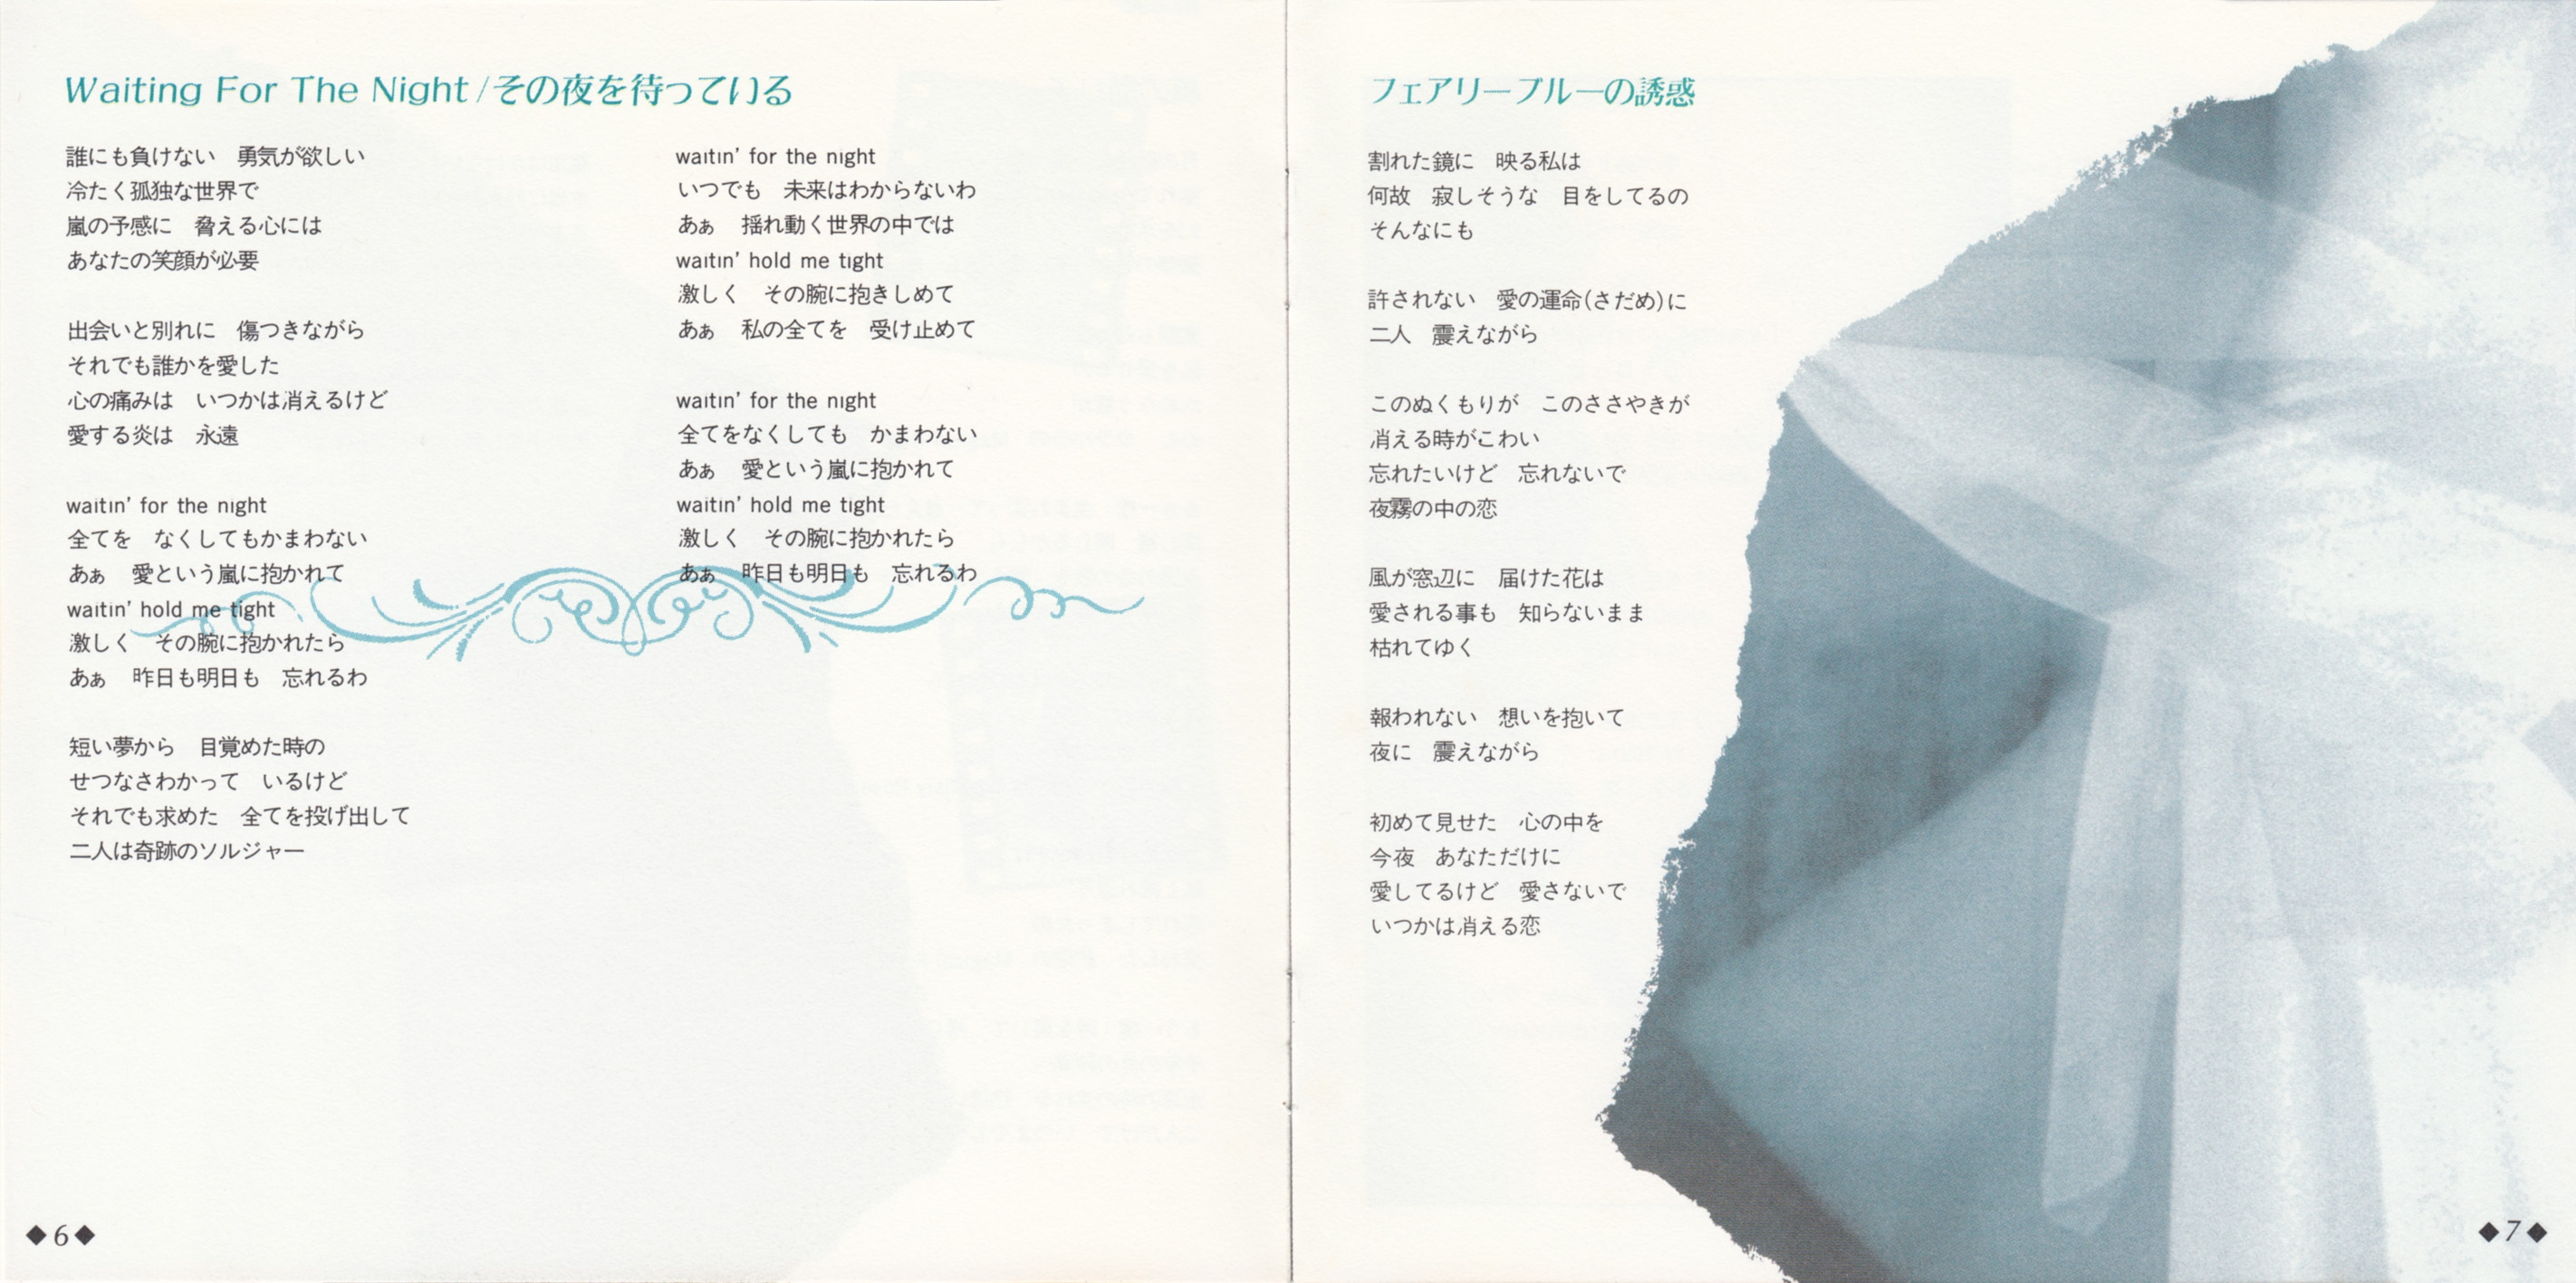 Waiting For The Night/その夜を待っている
誰にも負けない　勇気が欲しい
冷たく孤独な世界で
嵐の予感に　脅える心には
あなたの笑顔が必要
出会いと別れに　傷つきながら
それでも誰かを愛した
心の痛みは　いつかは消えるけど
愛する炎は　永遠
waitin' for the night
全てを　なくしてもかまわない
あぁ　愛という嵐に抱かれて
waitin' hold me tight
激しく　その腕に抱かれたら
あぁ　昨日も明日も　忘れるわ
短い夢から　目覚めた時の
せつなさわかって　いるけど
それでも求めた　全てを投げ出して
二人は奇跡のソルジャー
waitin' for the night
いつでも　未来はわからないわ
あぁ　揺れ動く世界の中では
waitin' hold me tight
激しく　その腕に抱きしめて
あぁ　私の全てを　受け止めて
waitin' for the night
全てをなくしても　かまわない
あぁ　愛という嵐に抱かれて
waitin' hold me tight
激しく　その腕に抱かれたら
あぁ　昨日も明日も　忘れるわ
◆6◆
フェアリーブルーの誘惑
割れた鏡に　映る私は
何故　寂しそうな　目をしてるの
そんなにも
許されない　愛の運命(さだめ)に
二人　震えながら
このぬくもりが　このささやきが
消える時がこわい
忘れたいけど　忘れないで
夜霧の中の恋
風が窓辺に　届けた花は
愛される事も　知らないまま
枯れてゆく
報われない　想いを抱いて
夜に　震えながら
初めて見せた　心の中を
今夜　あなただけに
愛してるけど　愛さないで
いつかは消える恋
◆7◆